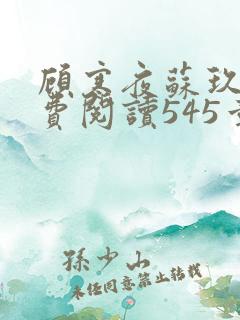 顧寒夜蘇玖
費閱讀545章
孫少山
未经同意禁止转载